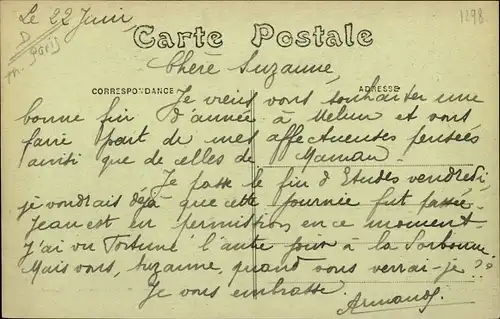 Le 22 Juin,
1298
D
Paris
Carte Postale
Chère Suzanne,
CORRESPONDANCE
ADRESSE
Je viens vous souhaiter une
bonne fin d'année à Melun et vous
faire part de mes affectueuses pensées
ainsi que de celles de Maman.
Je passe le fin d'Etudes vendredi,
je voudrais déjà que cette journée fut passée.
Jean est en permission en ce moment.
J'ai vu Fortuné l'autre jour à la Sorbonne.
Mais vous, Suzanne, quand vous verrai-je ??
Je vous embrasse.
Armand.